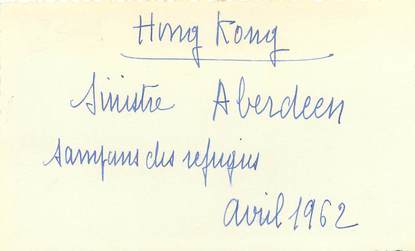 Hong Kong
Sinistre Aberdeen
sampans des refugies
avril 1962